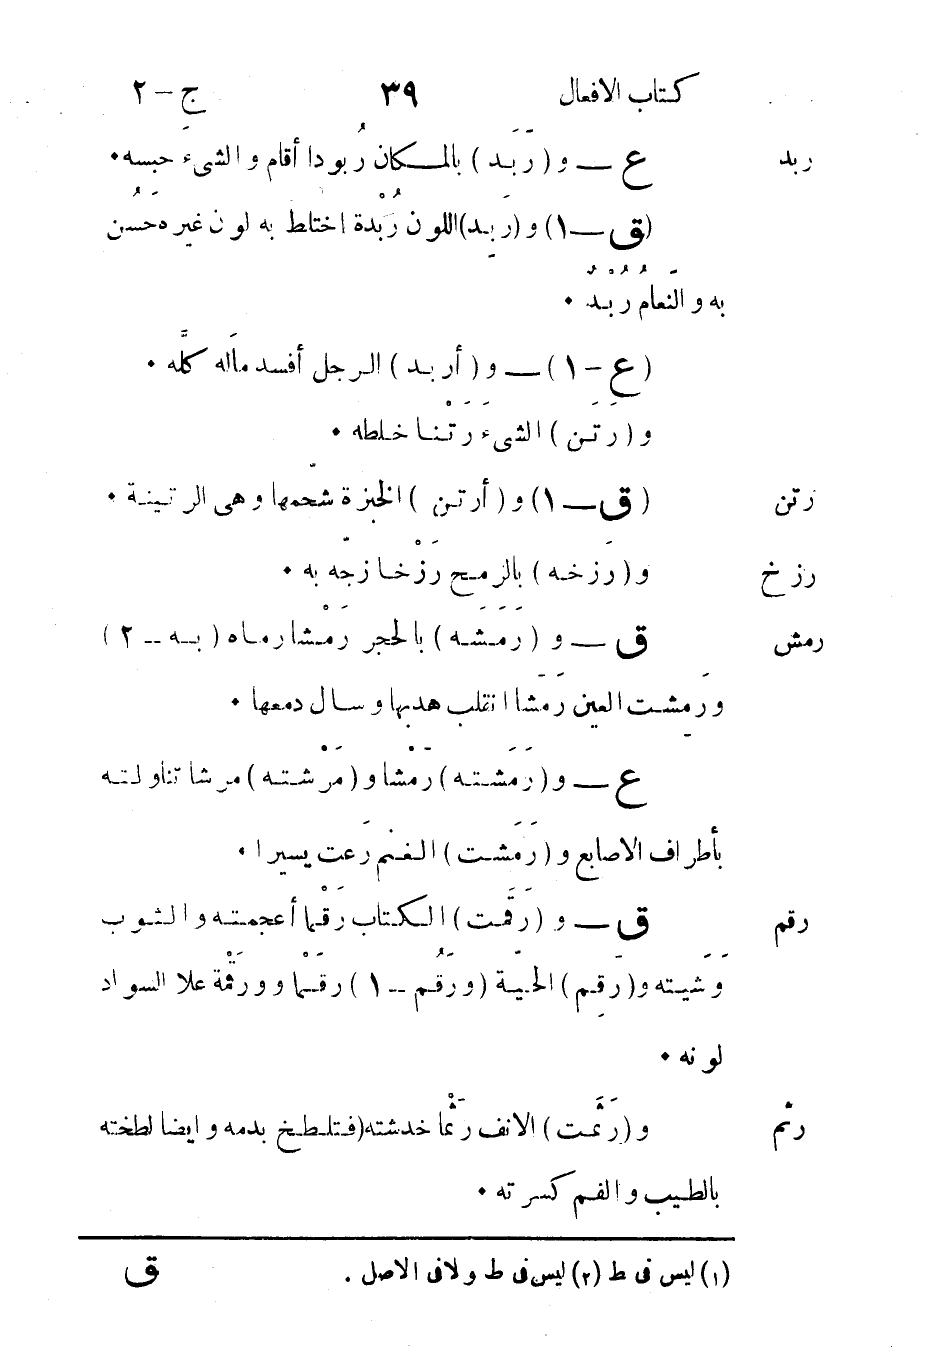 كتاب الافعال ٣٩ ج – ٢
ربد ع — و ( رَبَد ) بالمكان رُبودا أقام و الشىء حبَسه٠
(ق —١) و (رَبِد) اللون رُبْدة اختلط به لون غيره حَسُن
به و النعام رُبْدٌ ٠
(ع – ١) — و ( أربد ) الرجل أفسد مالَه كلَّه ٠
و ( رَتَن ) الشىء رَتْنا خلطه ٠
رتن (ق —١) و ( أرتن ) الخبزة شحّمها و هى الرتينة ٠
رزخ و ( رَزخه ) بالرمح رَزْخا زجّه به ٠
رمش ق — و ( رَمَشَه ) بالحجر رَمْشا رماه ( به – ٢ )
و رَمِشت العين رَمَشا انقلب هدبها و سال دمعها ٠
ع — و ( رَمَشته ) رَمْشا و ( مَرْشته ) مرشا تناولته
بأطراف الاصابع و ( رَمَشت ) الغنم رَعت يسيرا ٠
رقم ق — و ( رَقَمت ) الكتاب رَقْما أعجمته و الثوب
وَشيَته و ( رَقِم ) الحيّة ( و رَقُم – ١ ) رقَْما و ورَقْمة علا السواد
لونه ٠
رثم و ( رَثَمت ) الانف رَثْما خدشته (فتلطخ بدمه و ايضا لطخته
بالطيب و الفم كسرته ٠
(١) ليس فى ط (٢) ليس فى ط و لا فى الاصل . ق